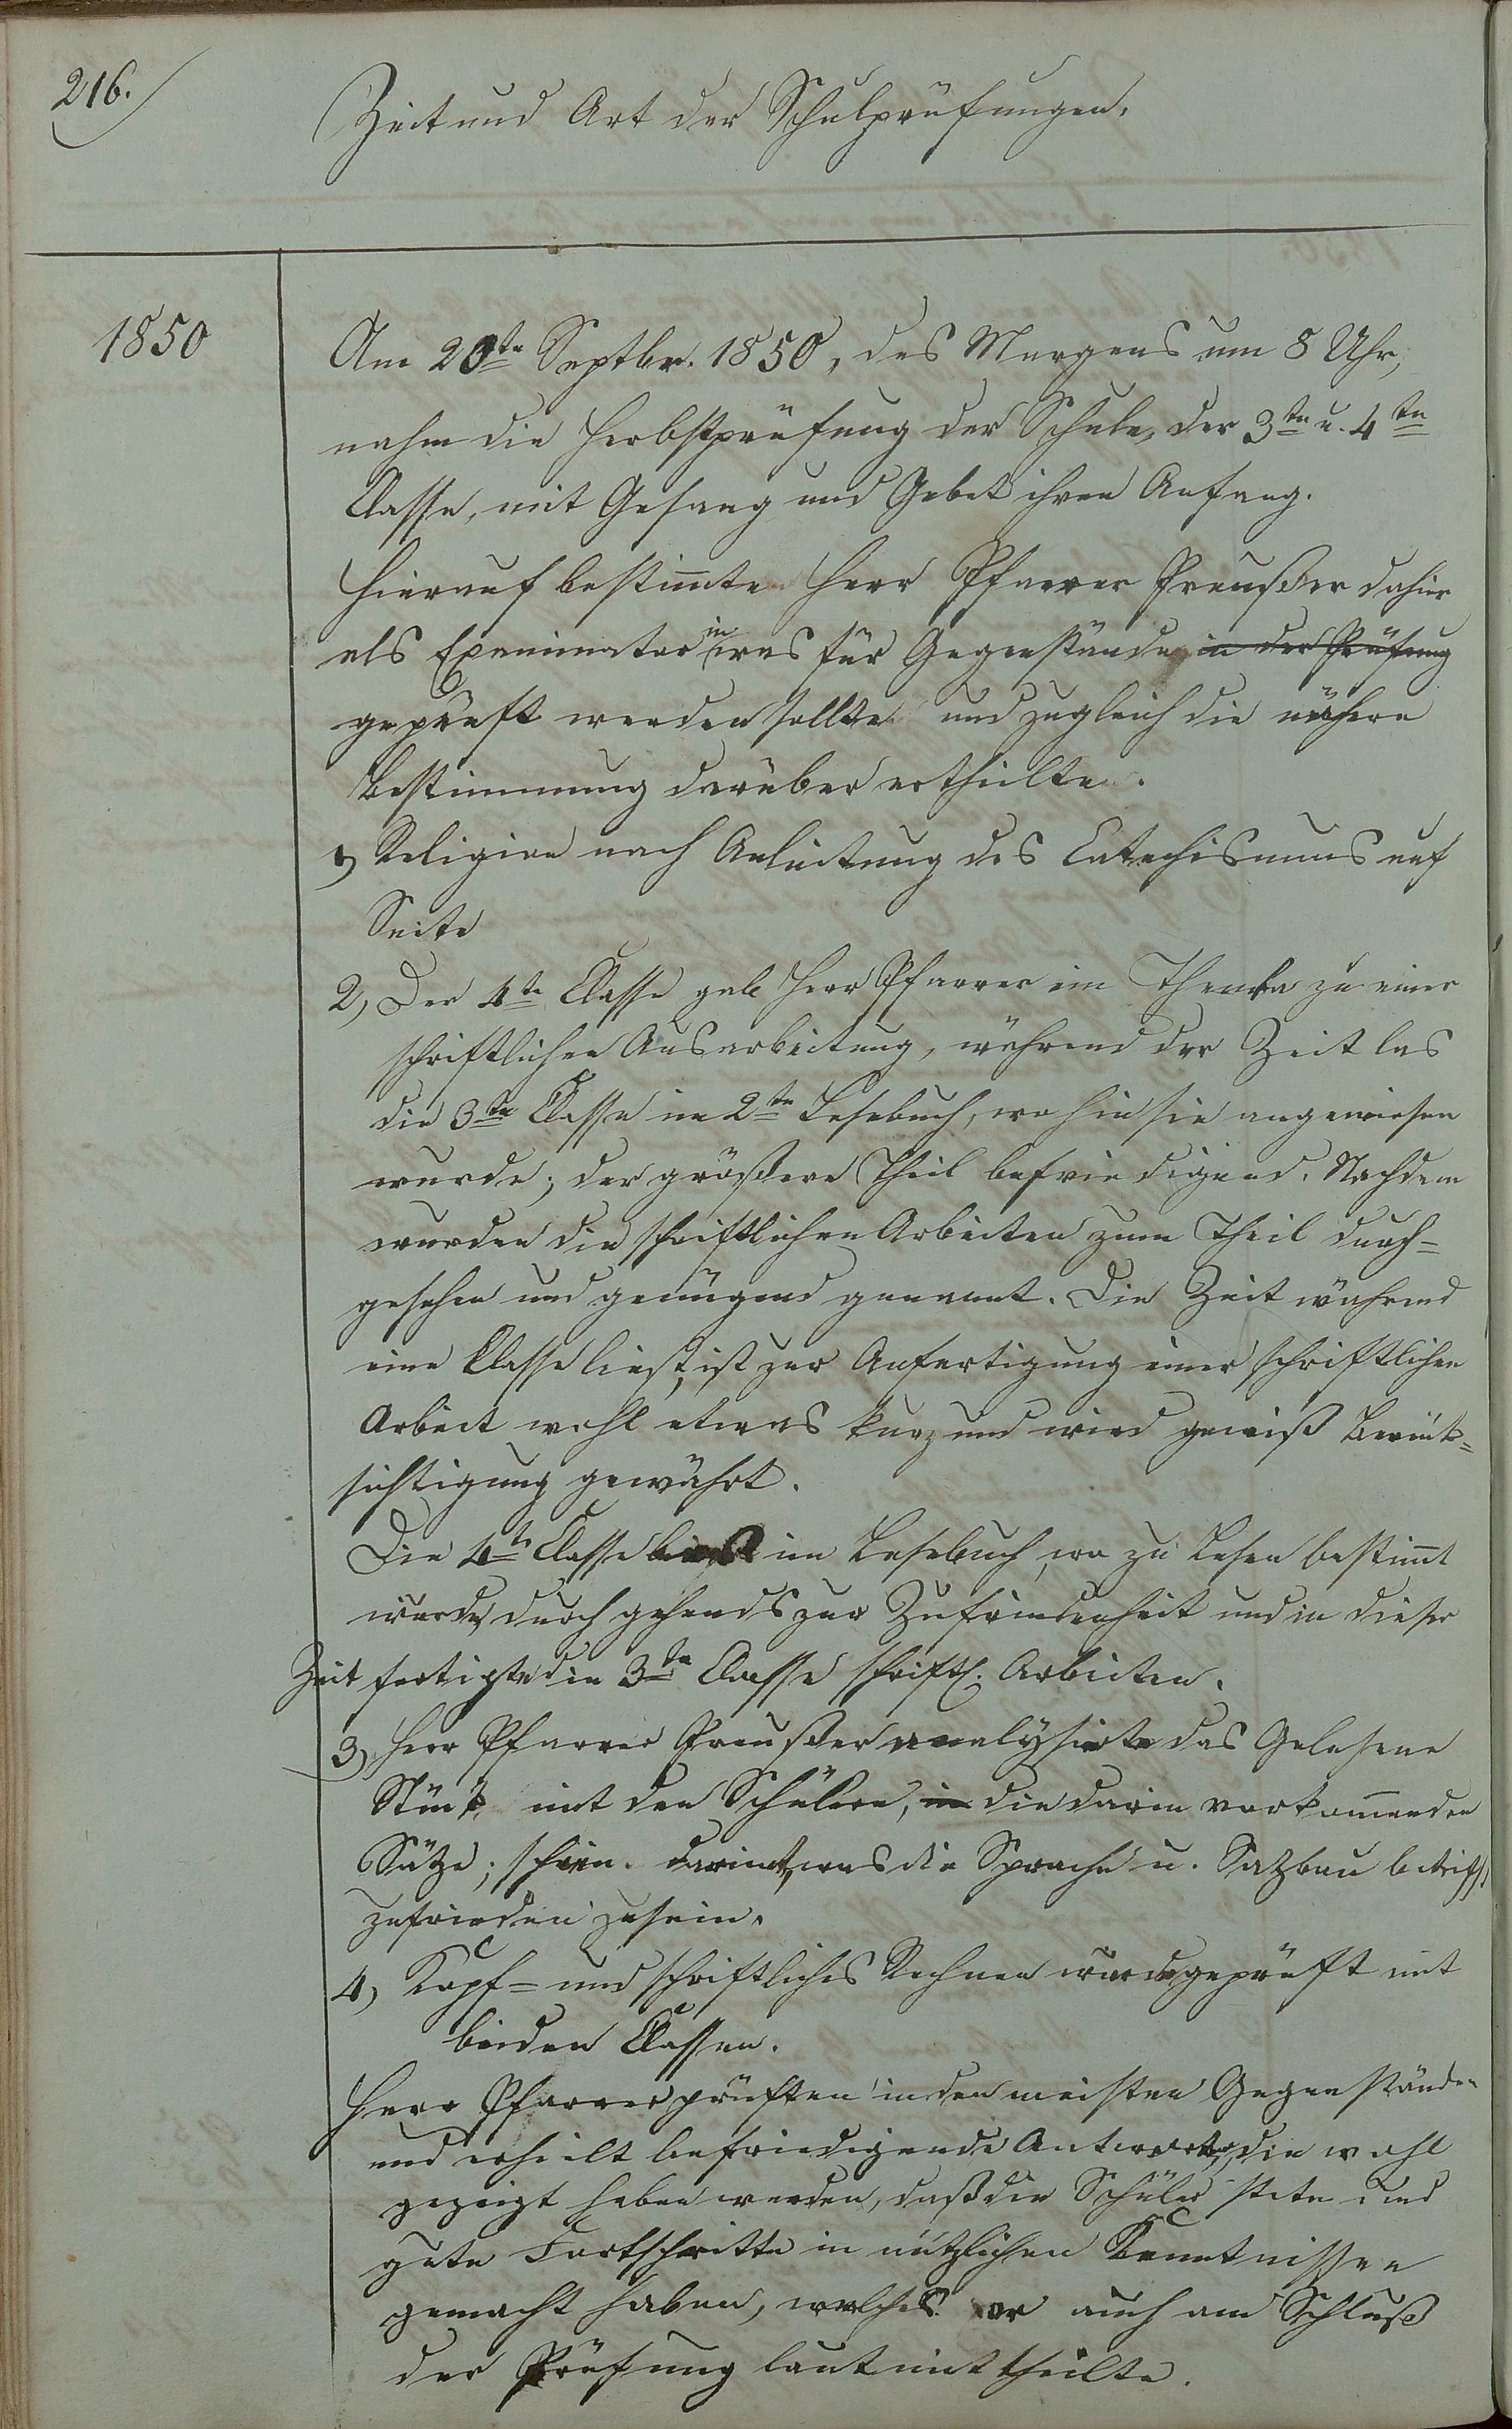 216.
Zeit und Art der Schulprüfungen.
1850
Am 20te Septbr. 1850, des Morgens um 8 Uhr,
nahm die Herbstprüfung der Schule, der 3te u. 4te
Classe, mit Gesang und Gebet ihren Anfang.
Hierauf bestimte Herr Pfarrer Preußer dahier
als Examinator in was für Gegenstände in der Prüfung
geprüft werden sollte und zugleich die nähere
Bestimmung darüber ertheilte.
1, Religion nach Anleitung des Catechismus auf
Seite
2, Der 4te Classe gab Herr Pfarrer ein Thema zu einer
schriftlichen Ausarbeitung, während der Zeit las
die 3te Classe im 2te Lesebuch, wo hin sie angewiesen
wurde; der größere Theil befriedigend. Nachdem
wurden die schriftlichen Arbeiten zum Theil durch=
gesehen und genügend genannt. Die Zeit während
eine Classe liest, ist zur Anfertigung einer schriftlichen
Arbeit wohl etwas kurz und wird gewiß Berück=
sichtigung gewährt.
Die 4te Classe ließt im Lesebuch, wo zu Lesen bestimt
wurde, durchgehends zur Zufriedenheit und in dieser
Zeit fertigte die 3te Classe schriftl. Arbeiten.
3, Herr Pfarrer Preußer analysirte das Gelesene
Stück mit den Schülern, in die darin vorkomenden
Sätze; schien damit, was die Sprache u. Satzbau betrifft
zufrieden zu sein.
4, Kopf= und schriftliches Rechnen wurde geprüft mit
beiden Classen.
Herr Pfarrer prüften in den meisten Gegenständen
und erhielt befriedigende Antworten, die wohl
gezeigt haben werden, daß die Schüler stete und
gute Fortschritte in nützlichen Kenntnissen
gemacht haben, welches er auch am Schluß
der Prüfung laut mittheilte.